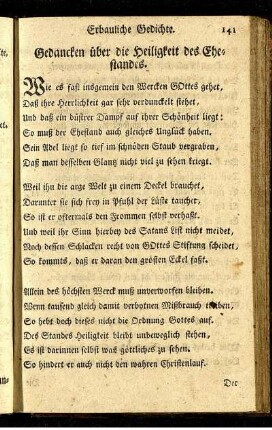 Erbauliche Gedichte. 141
Gedancken über die Heiligkeit des Ehe-
standes.
Wie es fast insgemein den Wercken GOttes gehet,
Daß ihre Herrlichkeit gar sehr verdunckelt stehet,
Und daß ein düstrer Dampf auf ihrer Schönheit liegt:
So muß der Ehestand auch gleiches Unglück haben.
Sein Adel liegt so tief im schnöden Staub vergraben,
Daß man desselben Glantz nicht viel zu sehen kriegt.
Weil ihn die arge Welt zu einem Deckel brauchet,
Darunter sie sich frey in Pfuhl der Lüste tauchet,
So ist er oftermals den Frommen selbst verhaßt.
Und weil ihr Sinn hierbey des Satans List nicht meidet,
Noch dessen Schlacken recht von GOttes Stiftung scheidet,
So kommts, daß er daran den grösten Eckel faßt.
Allein des höchsten Werck muß unverworfen bleiben.
Wenn tausend gleich damit verbotnen Mißbrauch treiben,
So hebt doch dieses nicht die Ordnung Gottes auf.
Des Standes Heiligkeit bleibt unbeweglich stehen,
Es ist darinnen selbst was göttliches zu sehen.
So hindert er auch nicht den wahren Christenlauf.
Der